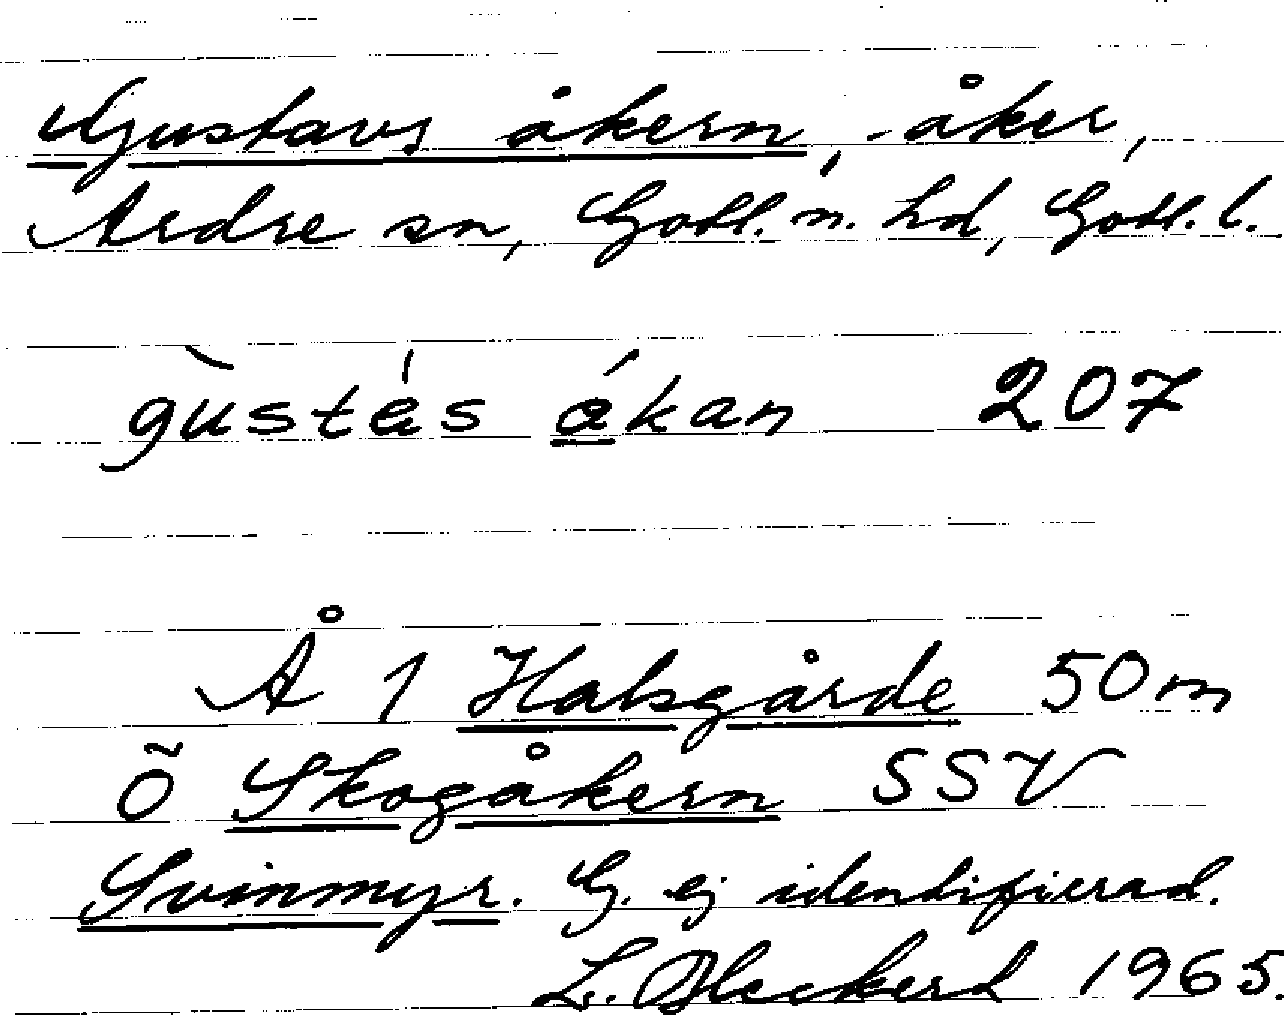 Gustavs åkern, åker,
Ardre sn, Gotl. n. hd, Gotl. l.
gùstás ákan 207
Å 1 Halsgårde 50 m
Ö Skogåkern SSV
Svinmyr. G. ej identifierad.
L. Bleckert 1965.